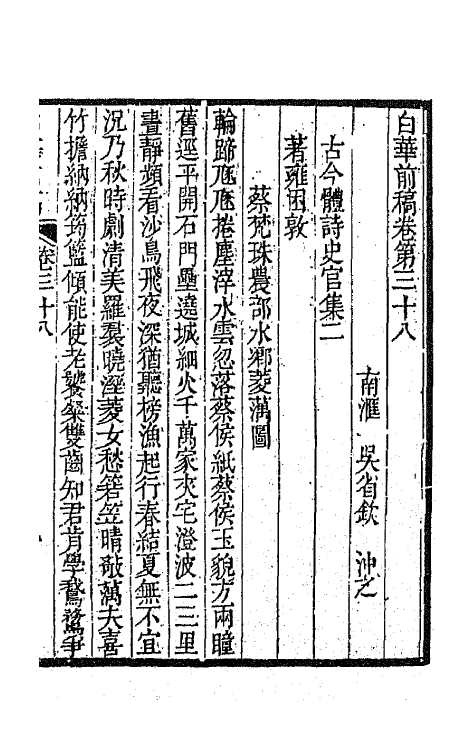 白華前稿卷第三十八
南滙 吳省欽 沖之
古今體詩史官集二
著雍困敦
蔡梵珠農部水鄉菱藕圖
輪蹄尰尰捲塵滓水雲忽落蔡侯紙蔡侯玉貌方兩瞳
舊逕平開石門壘遶城細火千萬家夾宅澄波二三里
晝靜頻看沙鳥飛夜深猶聽榜漁起行春結夏無不宜
況乃秋時劇清美羅裠曉溼菱女愁箬笠晴敲藕夫喜
竹擔納納筠籃傾能使老饕粲雙齒知君肯學我鵞爭
卷三十八